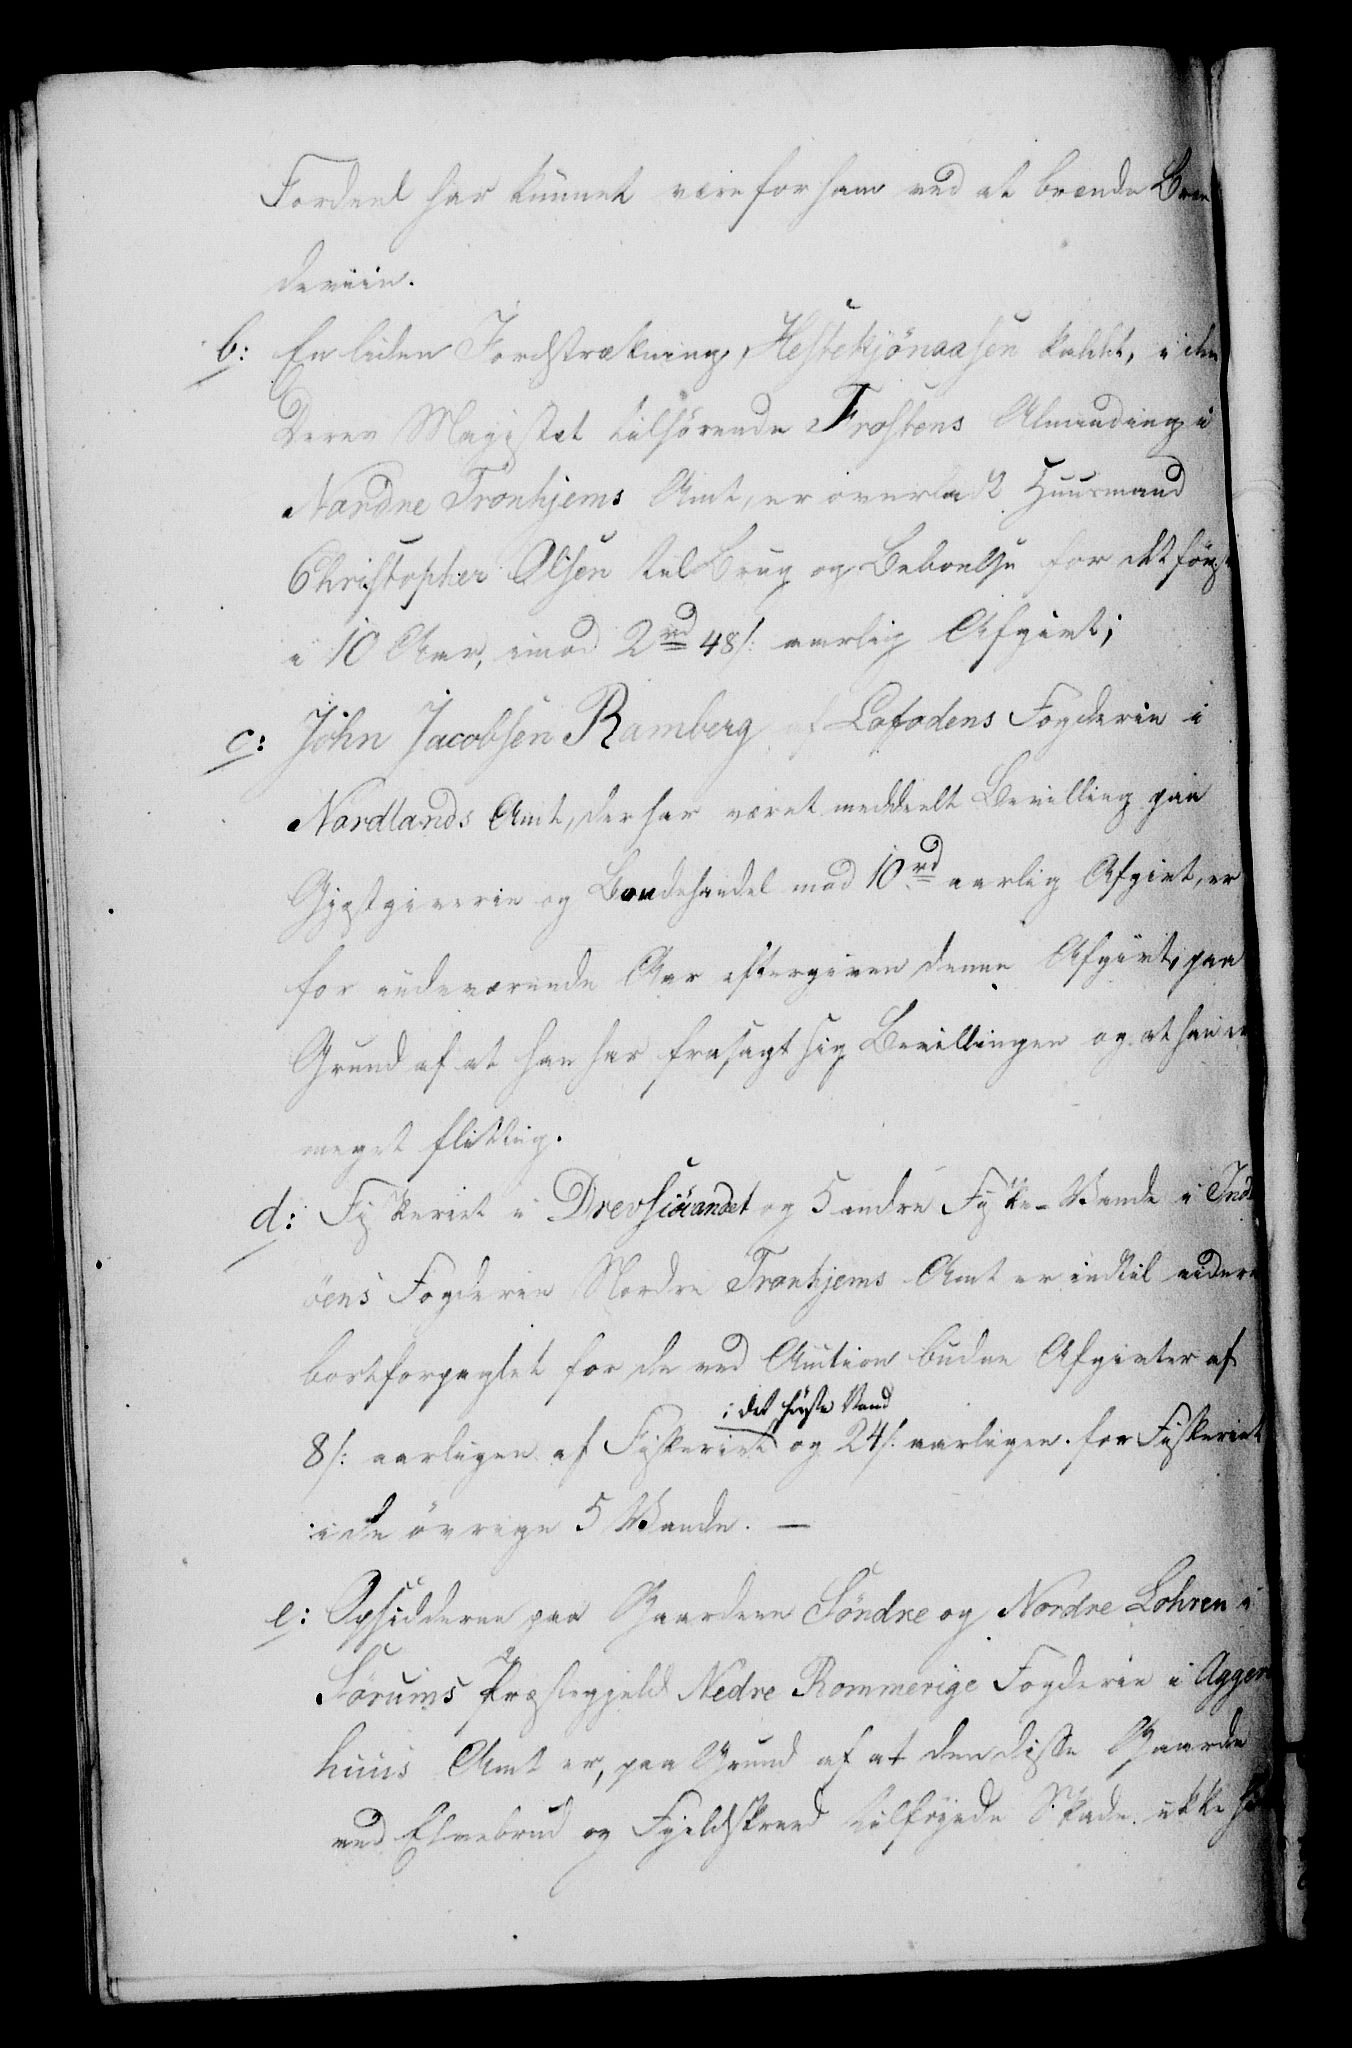 Fordeel har kunnet være for ham ved at brænde Bræn
deviin.
b: En liden Jordstrækning, Hestekjönaasen kaldet, i den
Deres Majestæt tilhörende Frostens Alminding i
Nordre Tronhjems Amt, er overladt Huusmand
Christopher Olsen til Brug og Beboelse for det förste
i 10 Aar, imod 2 rd 48 s: aarlig Afgivt;
c: John Jacobsen Ramberg af Lofodens Fogderie i
Nordlands Amt, der har været meddeelt Bevilling paa
Gjæstgiverie og Bondehandel mod 10 rd aarlig Afgivt, er
for indeværende Aar eftergiven denne Afgivt, paa
Grund af at han har frasagt sig Bevillingen og at han er
meget flittig.
d: Fiskeriet i Drevsiövandet og 5 andre Fiske-Vande i Ind
öens Fogderie Nordre Tronhjems Amt er indtil videre
bortforpagtet for de ved Auction budne Afgivter af
i det förste Vand
8 s: aarligen af Fiskeriet og 24 s: aarligen for Fiskeriet
i de övrige 5 Vande. —
e: Opsidderne paa Gaardene Söndre og Nordre Lohren i
Sörums Præstegjeld Nedre Rommerige Fogderie i Agger
huus Amt er, paa Grund af at den disse Gaarde
ved Elvebrud og Fjeldskred tilföyede Skade ikke